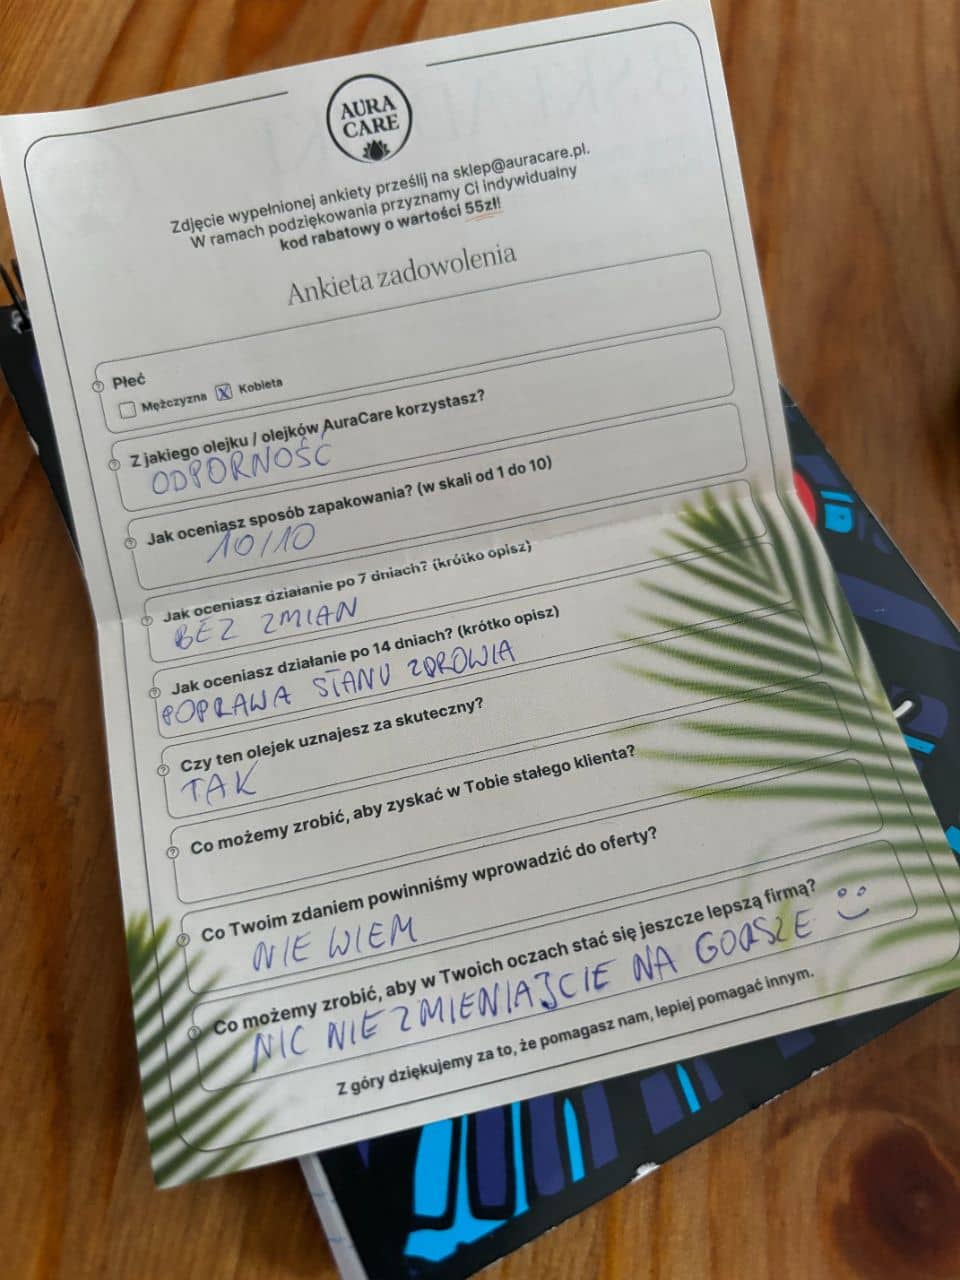 AURA
CARE
Zdjęcie wypełnionej ankiety prześlij na sklep@auracare.pl.
W ramach podziękowania przyznamy Ci indywidualny
kod rabatowy o wartości 55zł!
Ankieta zadowolenia
Płeć
Mężczyzna X Kobieta
Z jakiego olejku / olejków AuraCare korzystasz?
ODPORNOŚĆ
Jak oceniasz sposób zapakowania? (w skali od 1 do 10)
10/10
Jak oceniasz działanie po 7 dniach? (krótko opisz)
BEZ ZMIAN
Jak oceniasz działanie po 14 dniach? (krótko opisz)
POPRAWA STANU ZDROWIA
Czy ten olejek uznajesz za skuteczny?
TAK
Co możemy zrobić, aby zyskać w Tobie stałego klienta?
Co Twoim zdaniem powinniśmy wprowadzić do oferty?
NIE WIEM
Co możemy zrobić, aby w Twoich oczach stać się jeszcze lepszą firmą?
NIC NIE ZMIENIAJCIE NA GORSZE
Z góry dziękujemy za to, że pomagasz nam, lepiej pomagać innym.